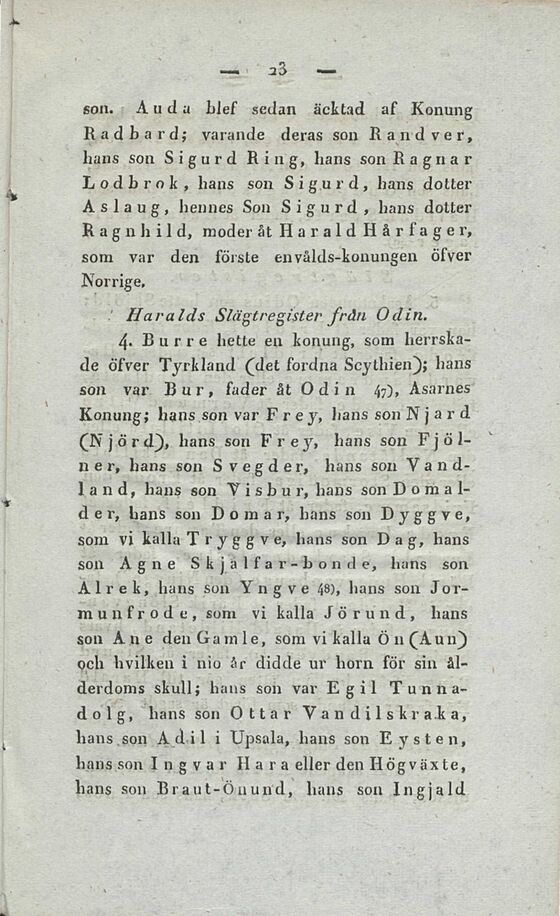 — 23 —
son. Auda blef sedan äcktad af Konung
Radbard; varande deras son Randver,
hans son Sigurd Ring, hans son Ragnar
Lodbrok, hans son Sigurd, hans dotter
Aslaug, hennes Son Sigurd, hans dotter
Ragnhild, moder åt Harald Hårfager,
som var den förste envålds-konungen öfver
Norrige.
Haralds Slägtregister från Odin.
4. Burre hette en konung, som herrska-
de öfver Tyrkland (det fordna Scythien); hans
son var Bur, fader åt Odin 47), Asarnes
Konung; hans son var Frey, hans son Njard
(Njörd), hans son Frey, hans son Fjöl-
ner, hans son Svegder, hans son Vand-
land, hans son Visbur, hans son Domal-
der, hans son Domar, hans son Dyggve,
som vi kalla Tryggve, hans son Dag, hans
son Agne Skjalfar-bonde, hans son
Alrek, hans son Yngve 48), hans son Jor-
munfrode, som vi kalla Jörund, hans
son Ane den Gamle, som vi kalla Ön (Aun)
och hvilken i nio år didde ur horn för sin ål-
derdoms skull; hans son var Egil Tunna-
dolg, hans son Ottar Vandilskraka,
hans son Adil i Upsala, hans son Eysten,
hans son Ingvar Hara eller den Högväxte,
hans son Braut-Önund, hans son Ingjald